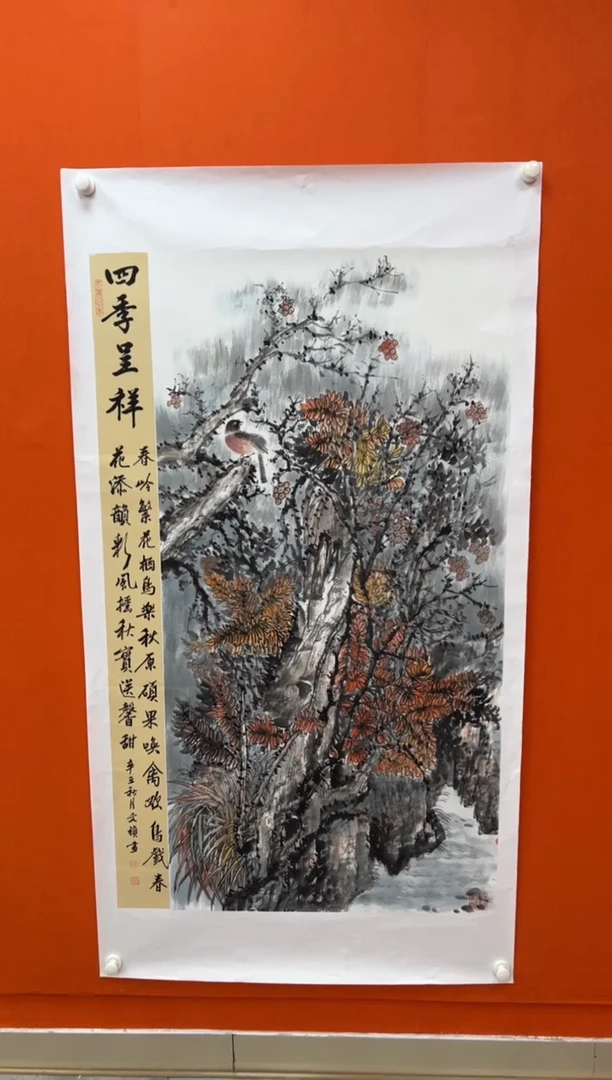 四季呈祥
春吟繁花栖鸟乐秋原硕果唤禽欢鸟戏春
花添韻彩风摇秋實送馨甜
辛丑秋月文祯画